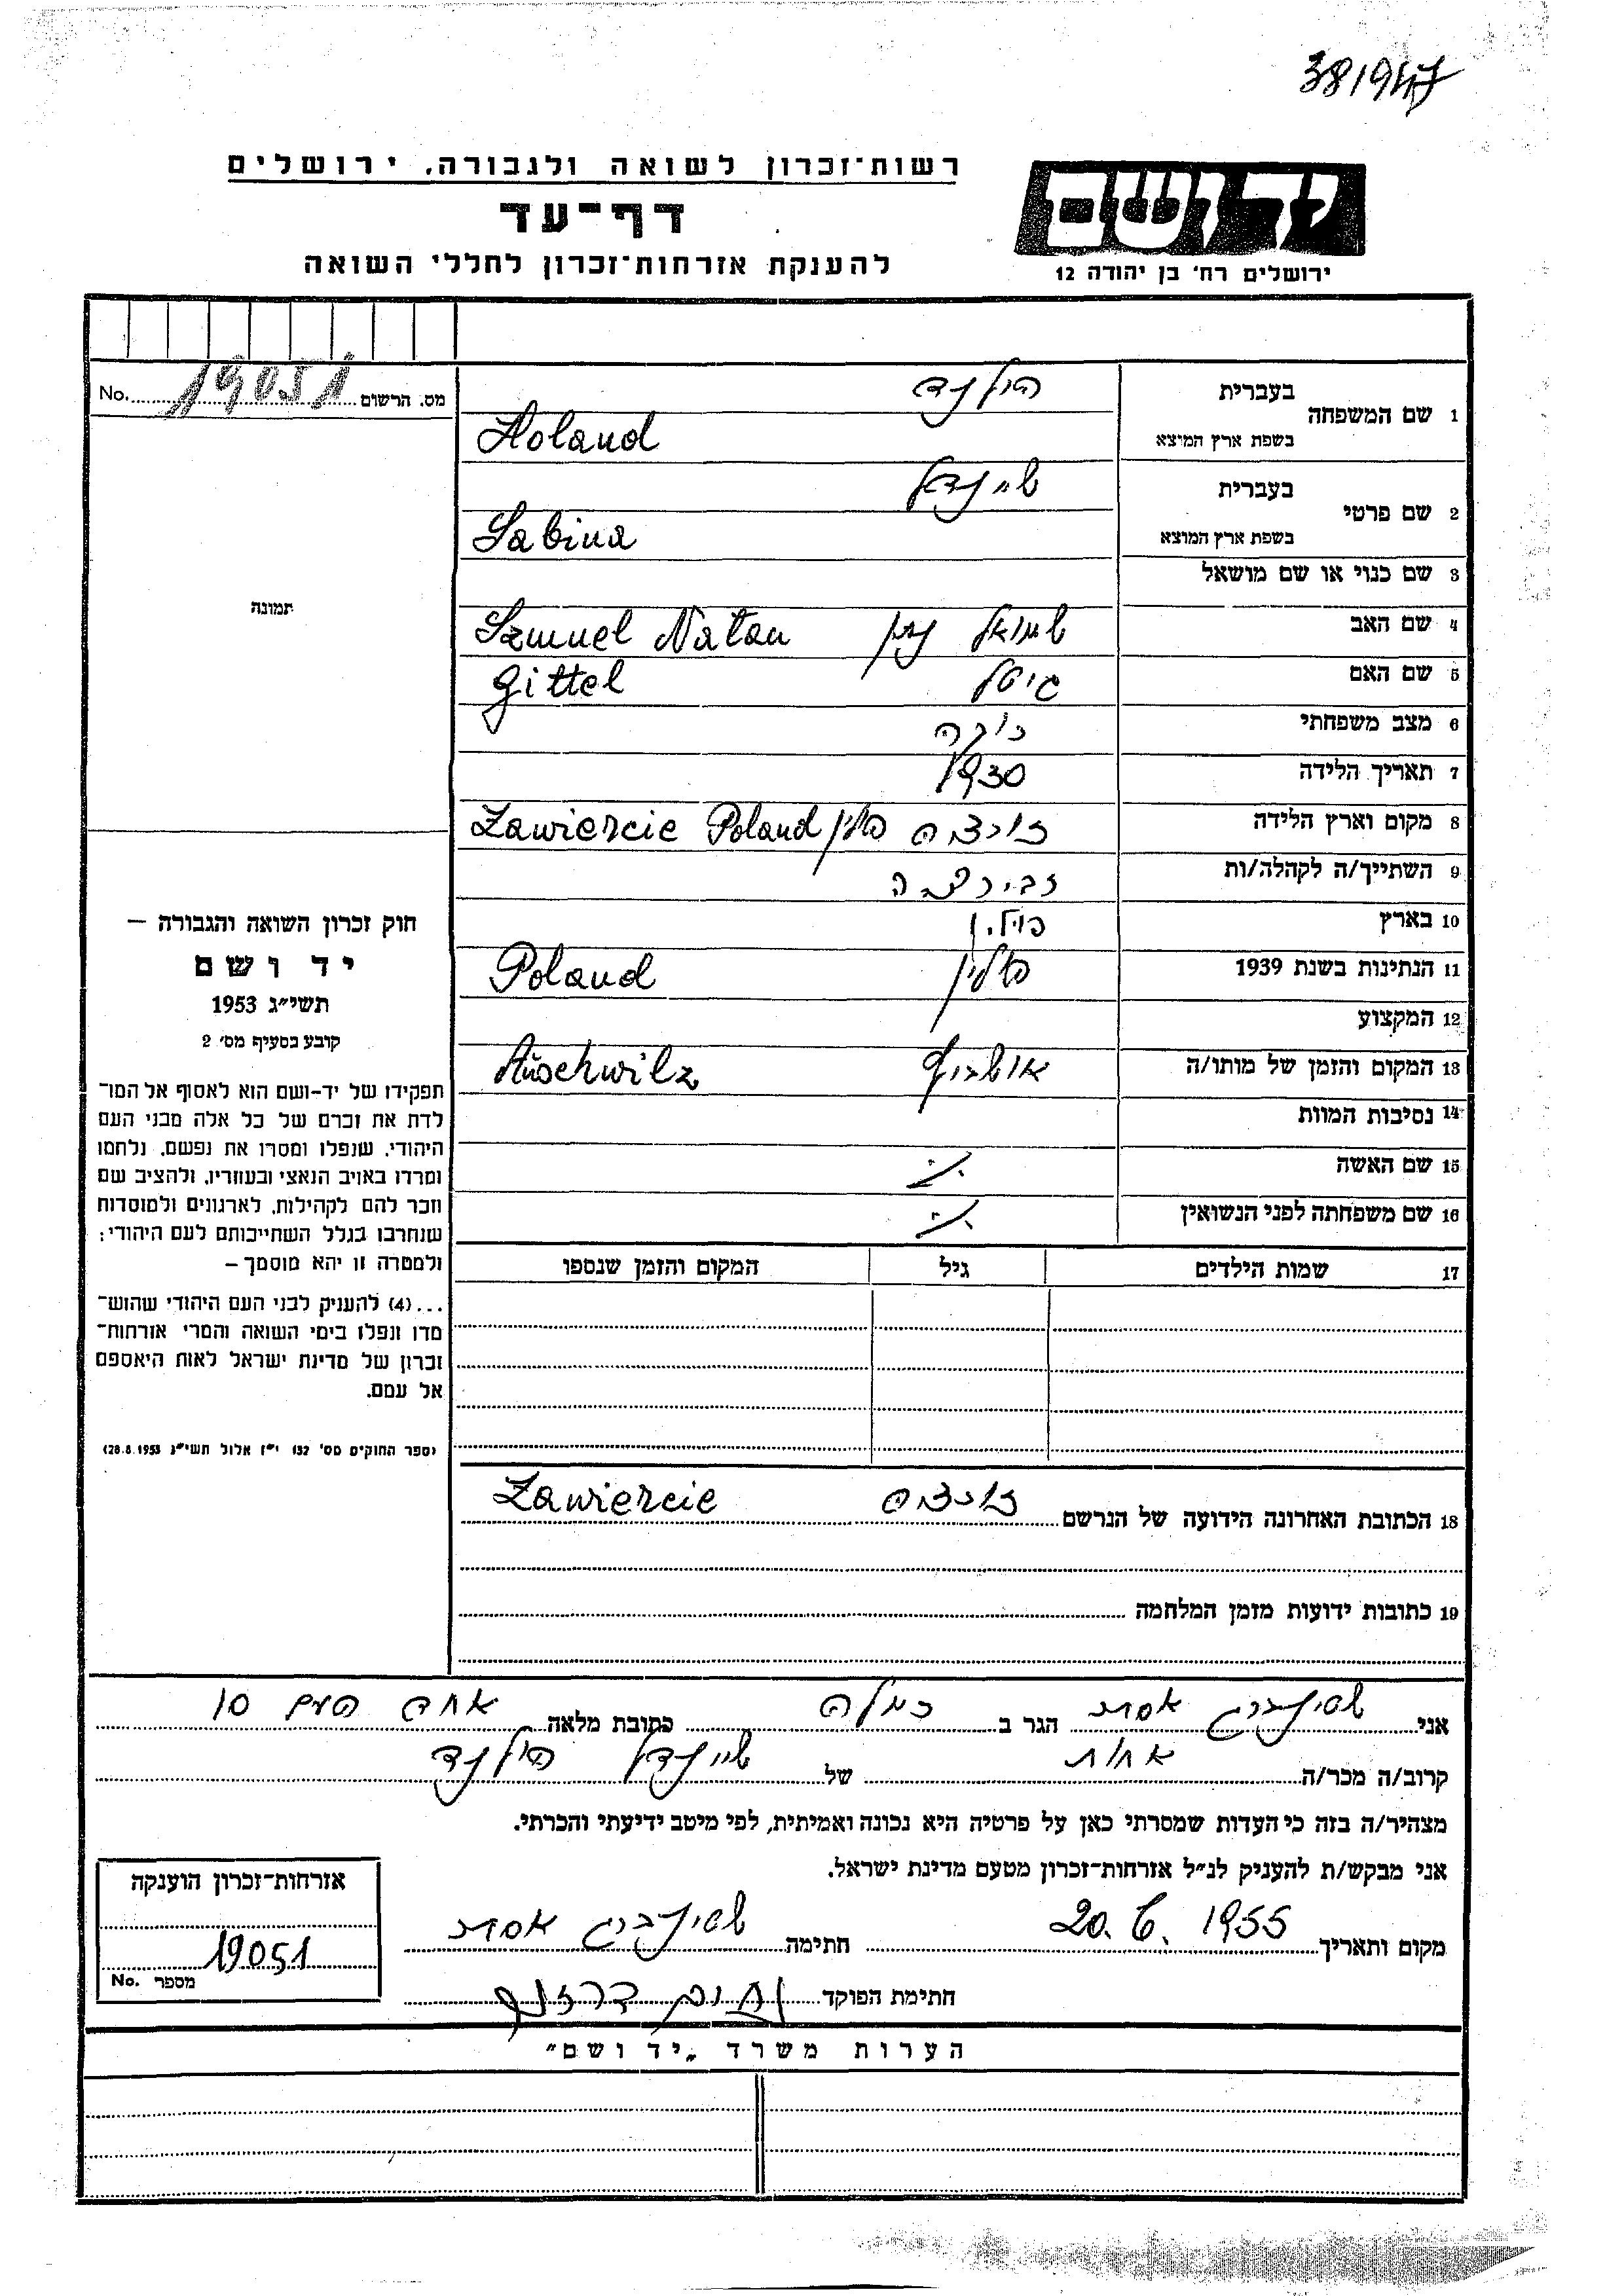 381947
רשות־זכרון לשואה ולגבורה, ירושלים
יד ושם
דף־עד
להענקת אזרחות־זכרון לחללי השואה
ירושלים רח' בן יהודה 12
No. 19051 מס. הרשום
תמונה
1 שם המשפחה בעברית הולנד
בשפת ארץ המוצא Holand
2 שם פרטי בעברית שיינדל
בשפת ארץ המוצא Sabina
3 שם כנוי או שם מושאל
4 שם האב שמואל נתן Szmuel Natan
5 שם האם גיטל Gittel
6 מצב משפחתי רוקה
7 תאריך הלידה 1930
8 מקום וארץ הלידה פולין Zawiercie Poland
9 השתייך/ה לקהלה/ות
10 בארץ פולין
11 הנתינות בשנת 1939 פולין Poland
12 המקצוע
13 המקום והזמן של מותו/ה Auschwitz
14 נסיבות המוות
15 שם האשה
16 שם משפחתה לפני הנשואין
17 שמות הילדים גיל המקום והזמן שנספו
18 הכתובת האחרונה הידועה של הנרשם Zawiercie
19 כתובות ידועות מזמן המלחמה
חוק זכרון השואה והגבורה –
יד ושם
תשי"ג 1953
קובע בסעיף מס' 2
תפקידו של יד-ושם הוא לאסוף אל המו־
לדת את זכרם של כל אלה מבני העם
היהודי, שנפלו ומסרו את נפשם, נלחמו
ומרדו באויב הנאצי ובעוזריו, ולהציב שם
וזכר להם לקהילות, לארגונים ולמוסדות
שנחרבו בגלל השתייכותם לעם היהודי;
ולמטרה זו יהא מוסמך –
...(4) להעניק לבני העם היהודי שהוש־
מדו ונפלו בימי השואה והמרי אזרחות־
זכרון של מדינת ישראל לאות היאספם
אל עמם.
(ספר החוקים מס' 132 י"ז אלול תשי"ג 28.8.1953)
אני שטינברג אסתר הגר ב רמלה כתובת מלאה אחד העם 10
קרוב/ה מכר/ה אחות של שיינדל הולנד
מצהיר/ה בזה כי העדות שמסרתי כאן על פרטיה היא נכונה ואמיתית, לפי מיטב ידיעתי והכרתי.
אני מבקש/ת להעניק לנ"ל אזרחות-זכרון מטעם מדינת ישראל.
מקום ותאריך 20.6.1955 חתימה שטינברג אסתר
חתימת הפוקד
אזרחות-זכרון הוענקה
19051
מספר No.
הערות משרד "יד ושם"